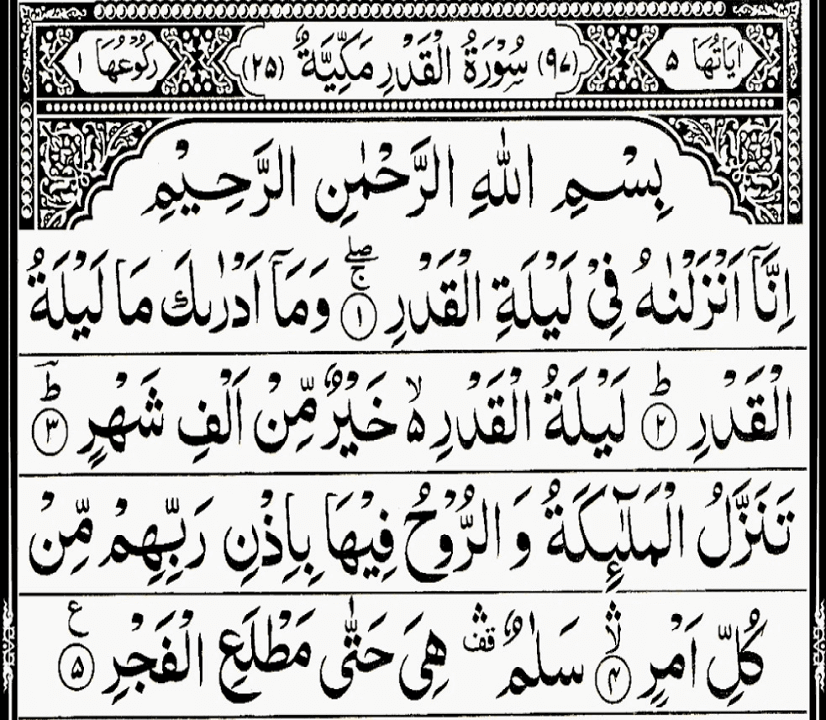 اٰیَاتُهَا ۵ (۹۷) سُوْرَةُ الْقَدْرِ مَكِّیَّةٌ (۲۵) رُكُوْعُهَا ۱
بِسْمِ اللّٰهِ الرَّحْمٰنِ الرَّحِیْمِ
اِنَّاۤ اَنْزَلْنٰهُ فِیْ لَیْلَةِ الْقَدْرِ ۚۖ ﴿۱﴾ وَمَاۤ اَدْرٰىكَ مَا لَیْلَةُ
الْقَدْرِ ؕ ﴿۲﴾ لَیْلَةُ الْقَدْرِ ۙ۬ خَیْرٌ مِّنْ اَلْفِ شَهْرٍ ؕؔ ﴿۳﴾
تَنَزَّلُ الْمَلٰٓىِٕكَةُ وَ الرُّوْحُ فِیْهَا بِاِذْنِ رَبِّهِمْ مِّنْ
كُلِّ اَمْرٍ ۙۛ ﴿۴﴾ سَلٰمٌ ۛ۫ هِیَ حَتّٰی مَطْلَعِ الْفَجْرِ ع ﴿۵﴾